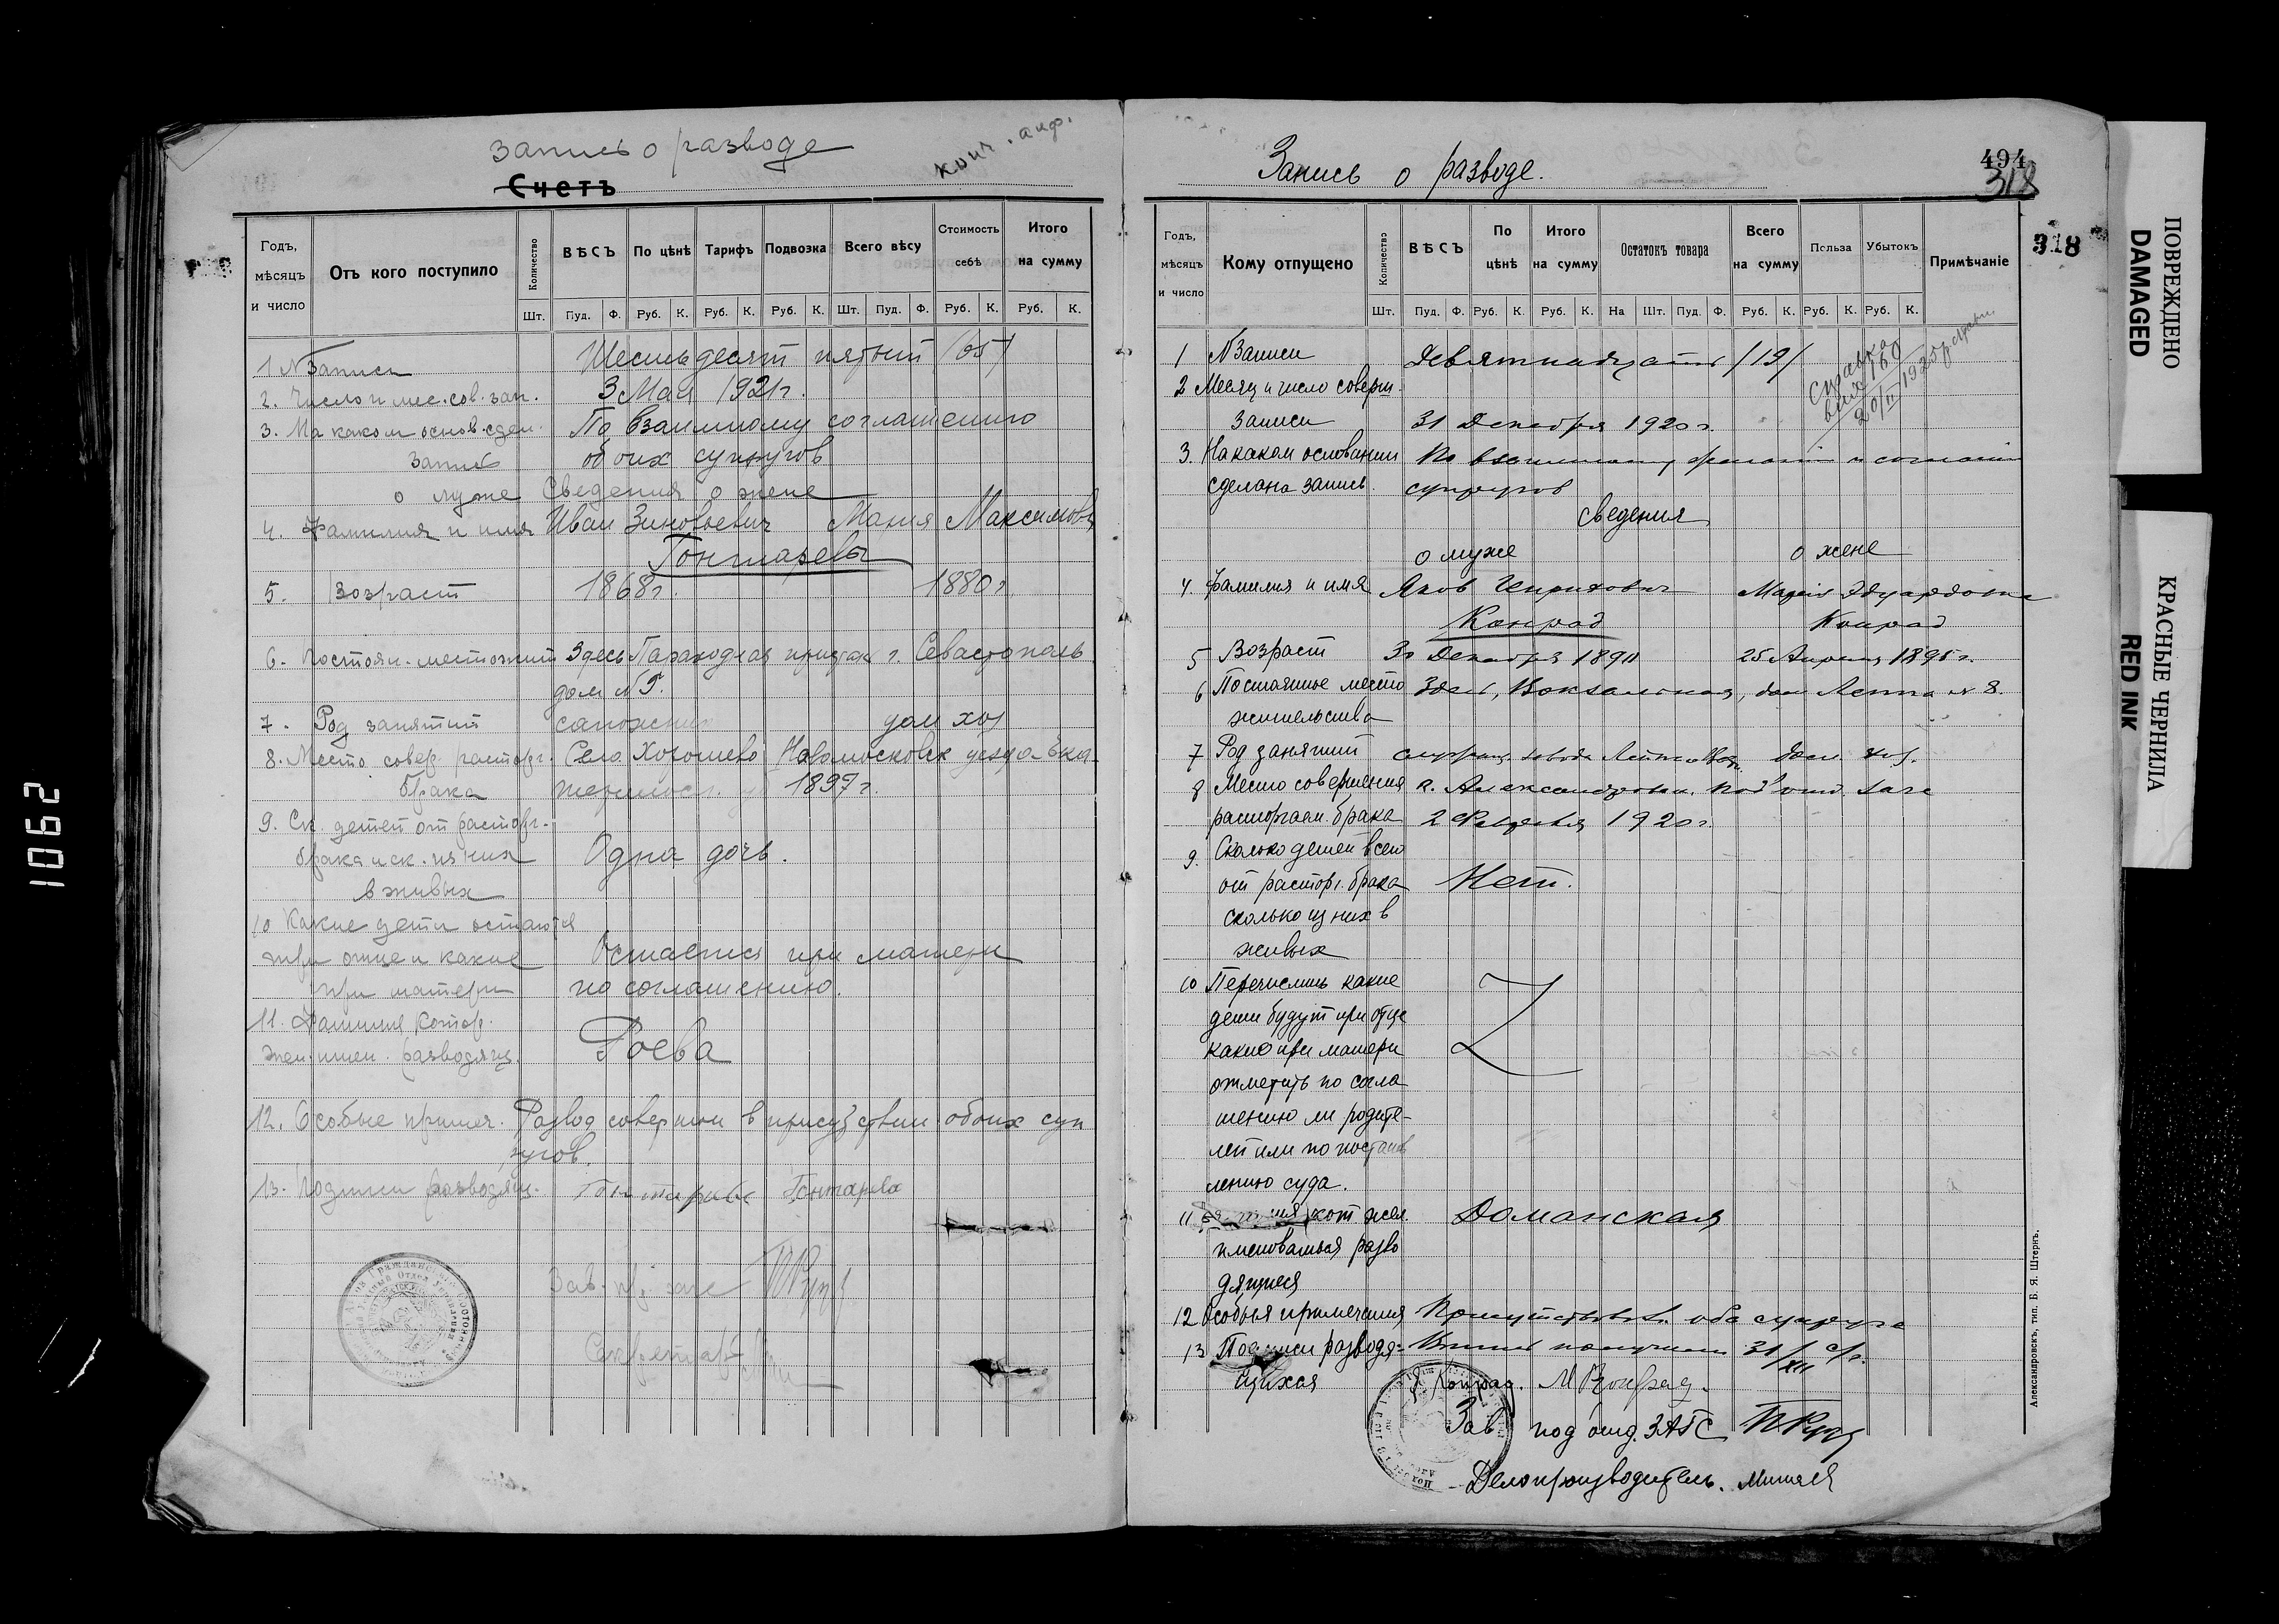 Запись о разводе
конч. алф.
Счетъ
Годъ, мѣсяцъ и число
Отъ кого поступило
Количество
ВѢСЪ
По цѣнѣ
Тарифъ
Подвозка
Всего вѣсу
Стоимость себѣ
Итого на сумму
Шт. Пуд. Ф. Руб. К. Руб. К. Руб. К. Шт. Пуд. Ф. Руб. К. Руб. К.
1 N Записи Шестьдесят пятый /65/
2. Число и мес. сов. зап. 3 Мая 1921 г.
3. На каком основ. сдел. По взаимному соглашению
запись обоих супругов
о муже Сведения о жене
4. Фамилия и имя Иван Зиновьевич Мария Максимовн
Гонтаревы
5. Возраст 1868 г. 1880 г.
6. Постоян. местожит Здесь Пароходная пристан г. Севастополь
дом N 5.
7. Род занятий сапожник дом хоз
8. Место совер. расторг. Село Хорошево Новомосковск уезда Ека-
брака 1897 г.
9. Ск. детей от расторг.-
брака и ск. из них Одна дочь.
в живых
10 Какие дети остаются
при отце и какие Остается при матери
при матери по соглашению.
11. Фамилия котор.
жел. имен. разводящ. Роева
12. Особые примеч. Развод совершен в присутствии обоих суп
ругов.
13. Подписи разводящ. Гонтарева
Зав. п/ заг
Секретарь
Запись о разводе.
494
318
318
Годъ, мѣсяцъ и число
Кому отпущено
Количество
ВѢСЪ
По цѣнѣ
Итого на сумму
Остатокъ товара
Всего на сумму
Польза
Убытокъ
Примѣчаніе
Шт. Пуд. Ф. Руб. К. Руб. К. На Шт. Пуд. Ф. Руб. К. Руб. К. Руб. К.
1 N Записи Девятнадцать /19/
Справка
2 Месяц и число соверш.
записи 31 Декабря 1920 г.
3. На каком основании По взаимному и согласию
сделана запись. супругов
Сведения
о муже о жене
4. Фамилия и имя Яков Генрихович Мария Эдуардовна
Конрад Конрад
5 Возраст 30 Декабря 189 25 Апреля 1895 г.
6 Постоянное место Здесь, Вокзальная, дом Леппа N 8.
жительства
7 Род занятий дом. хоз.
8 Место совершения г. Александровск. под'отд. Загс
расторгаем. брака 2 Февраля 1920 г.
9. Сколько детей всего
от расторг. брака Нет.
сколько из них в
живых
10 Перечислить какие
дети будут при отце
какие при матери
отметить по согла
шению ли родите-
лей или по постанов
лению суда.
11 кот жел. Доманская
именоваться разво
дящиеся
12 Особыя примечания Присутствовали оба супруга
13 Подписи разводя- 31/XII с/г.
щихся Я Конрад. М Конрад.
Зав под отд. ЗАГС
Делопроизводитель.
Александровскъ, тип. Б. Я. Штернъ.
ПОВРЕЖДЕНО
DAMAGED
КРАСНЫЕ ЧЕРНИЛА
RED INK
1062